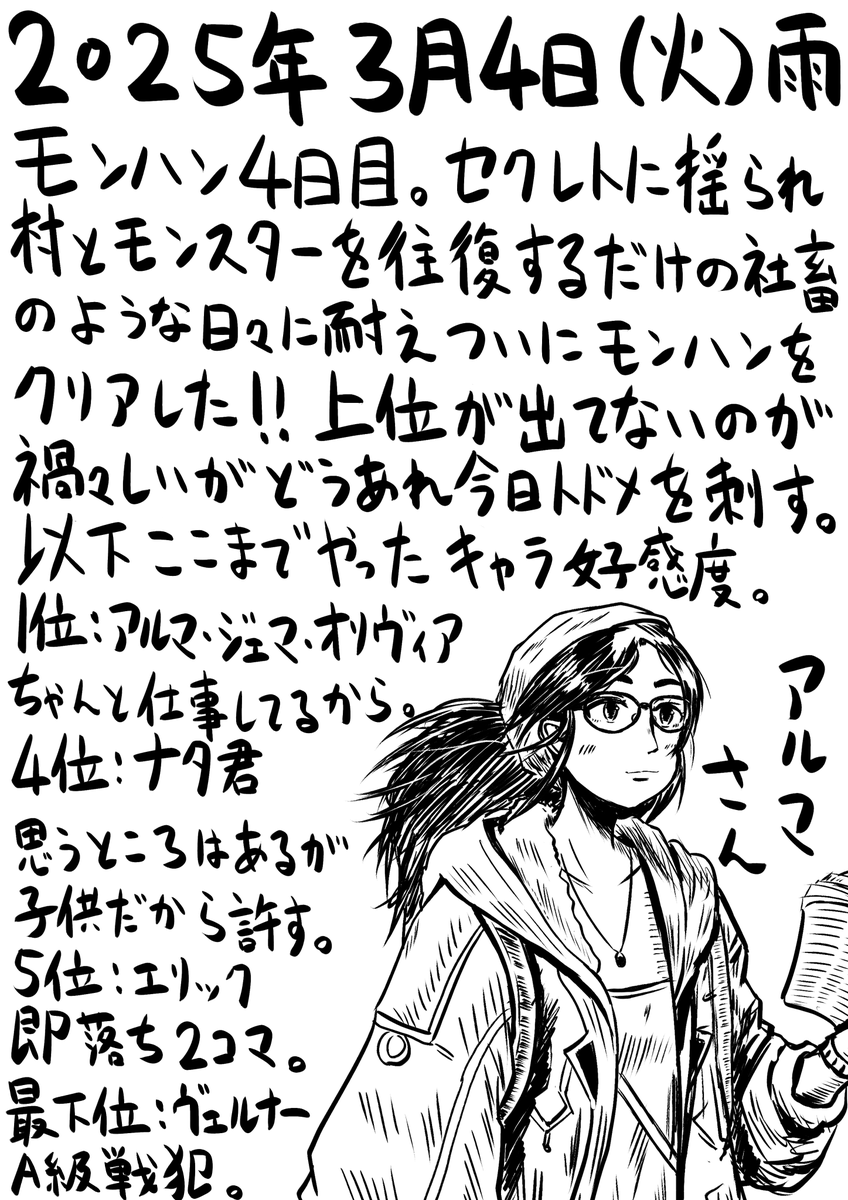 2025年3月4日(火)雨
モンハン4日目。セクレトに揺られ
村とモンスターを往復するだけの社畜
のような日々に耐えついにモンハンを
クリアした!!上位が出てないのが
禍々しいがどうあれ今日トドメを刺す。
以下ここまでやったキャラ好感度。
1位:アルマ・ジェマ・オリヴィア
ちゃんと仕事してるから。
4位:ナタ君
思うところはあるが
子供だから許す。
5位:エリック
即落ち2コマ。
最下位:ヴェルナー
A級戦犯。
アルマ
さん